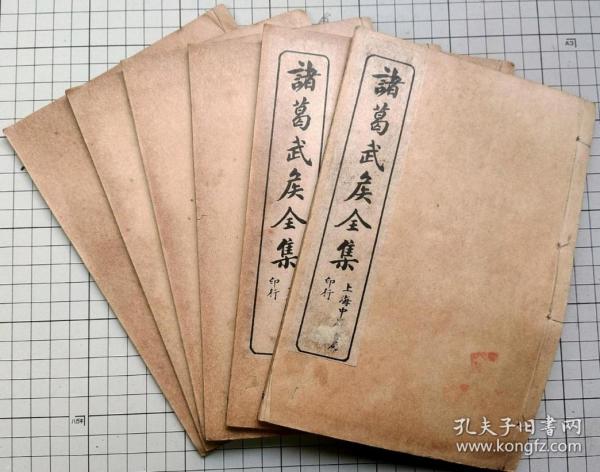 諸葛武矦全集
印行
諸葛武矦全集
上海中
印行
A3
孔夫子旧书网
www.kongfz.com